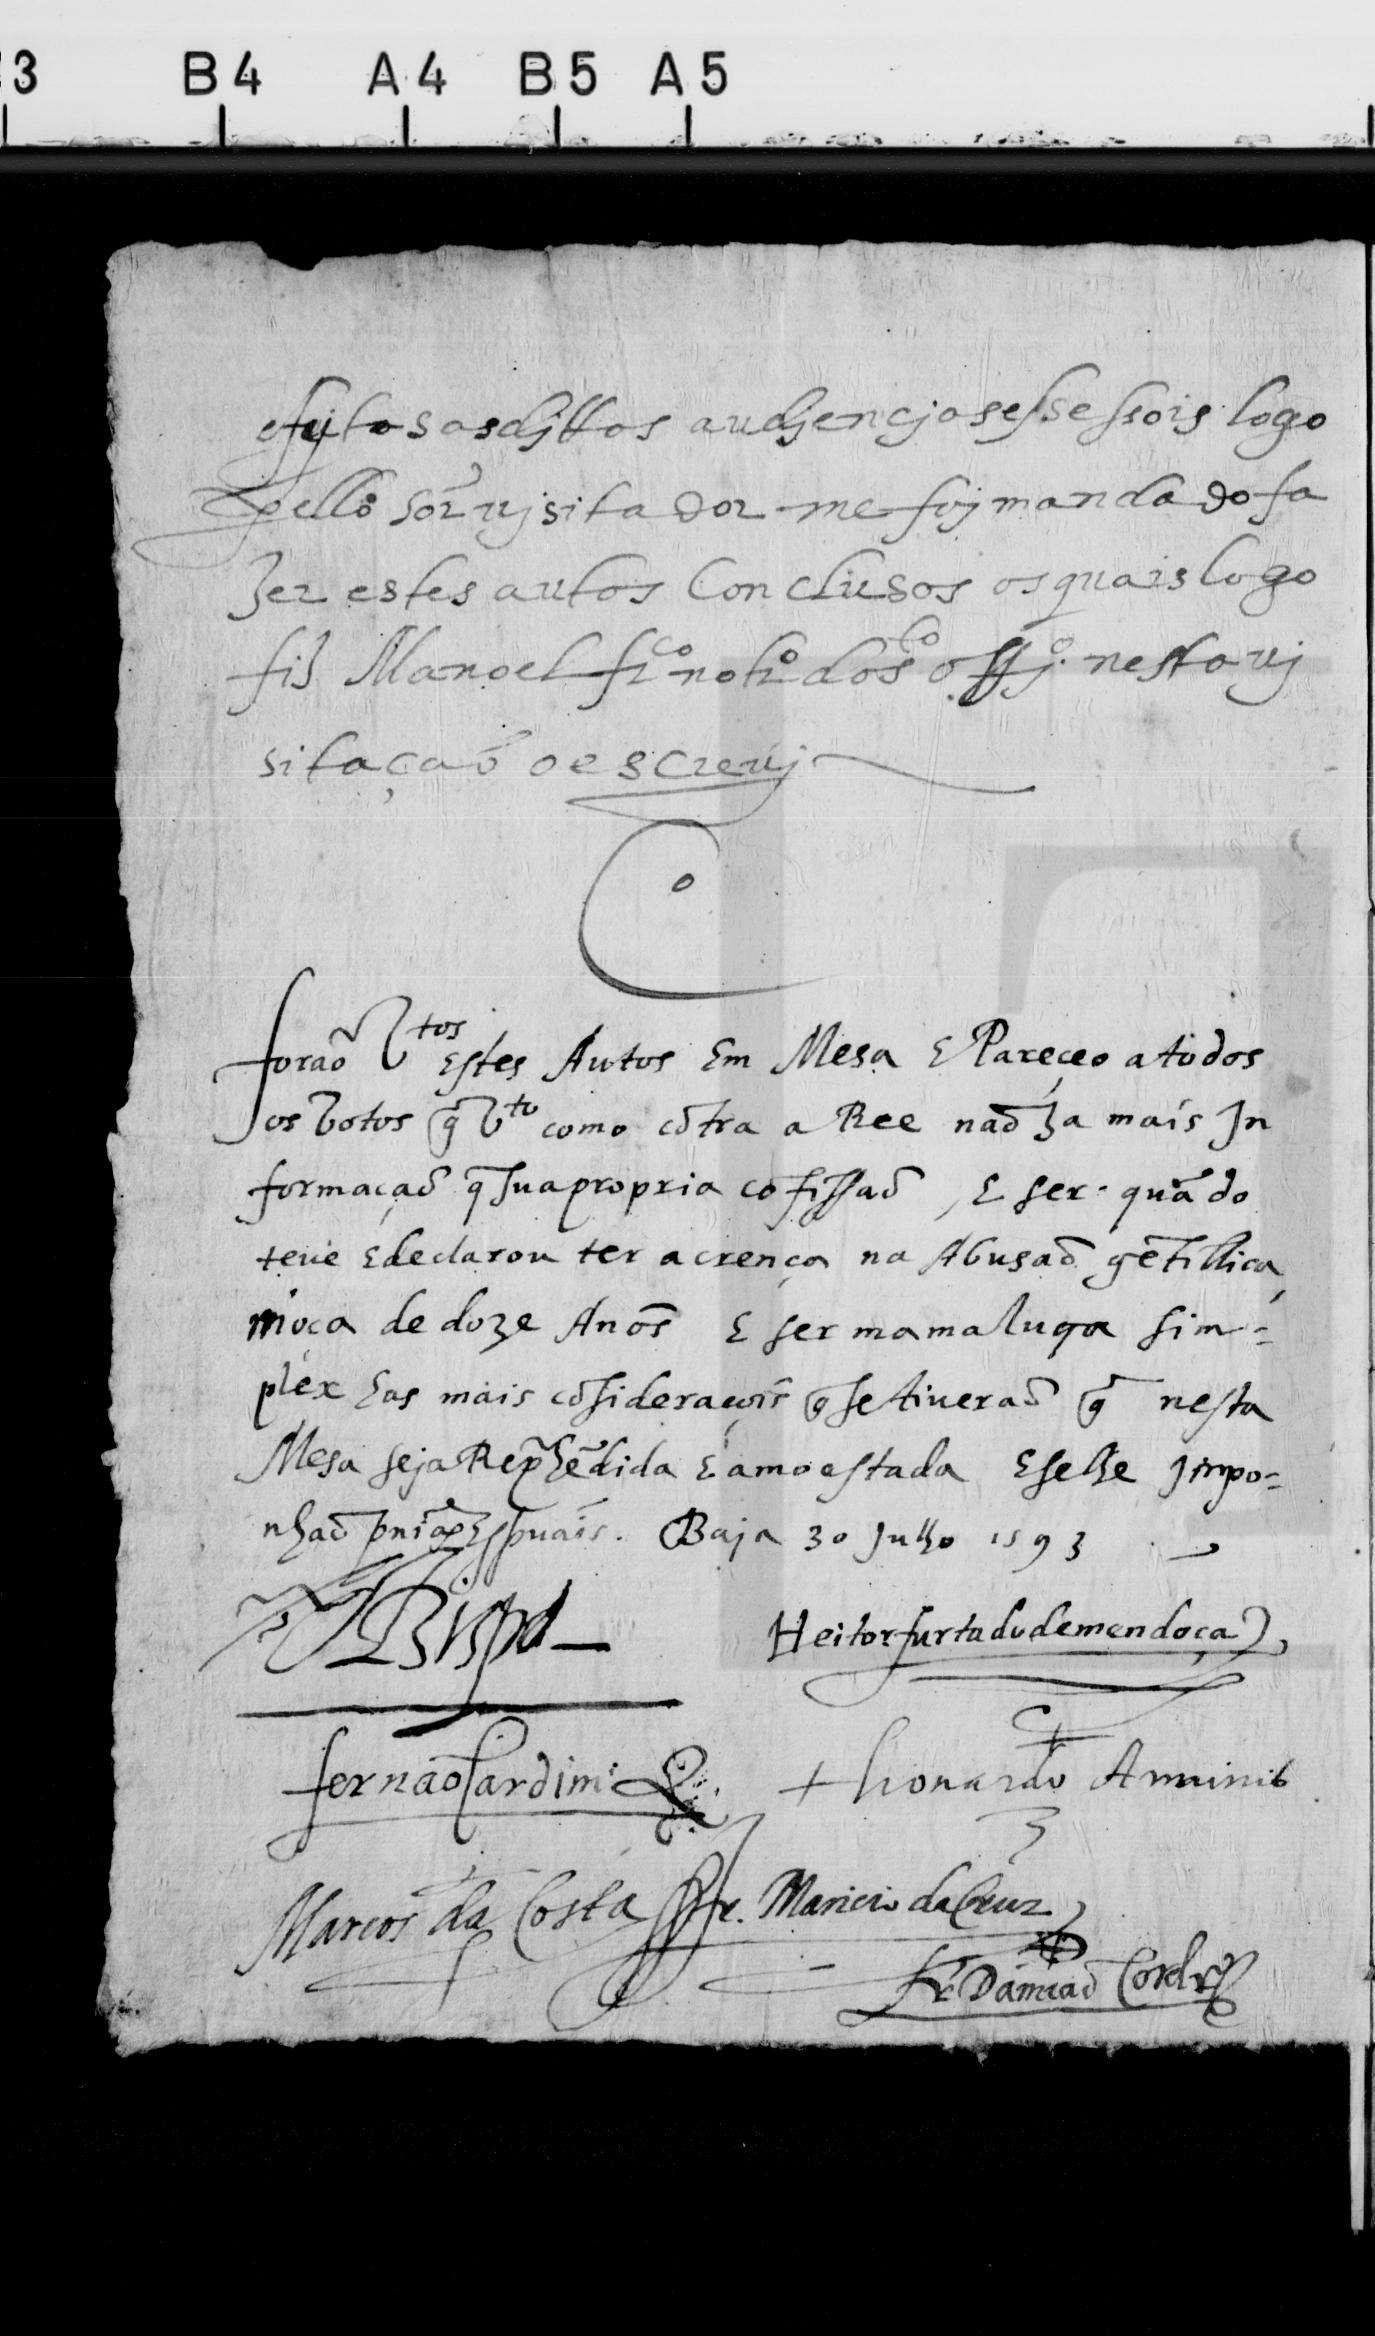 3 B4 A4 B5 A5
e fejtas as djttas audjencjas e ssessois logo
pello sor vjsitador me foj mandado fa
zer estes autos Conclusos os quais logo
fiz Manoel frco notro do sto offjo nesta vj
sitaçaõ o escrevj
Co
foraõ Vtos Estes Autos Em Mesa E Pareceo a todos
os Votos q̃ Vto como cõtra a Ree naõ ha mais In
formaçaõ q̃ sua propria cõfissaõ, E ser quãdo
teve E declarou ter a crença na Abusaõ gẽtillica,
moça de doze Anos E ser mamaluqa sim=
plex has mais cõsideraçois q̃ se tiveraõ q̃ nesta
Mesa seja Reprehẽdida E amoestada E se lhe Impo=
nhaõ pnias spuais. Baja 30 Julho 1593
Bispo
Heitor furtado de mendoça
fernaõ Cardim
+ lionardo Arminio
Marcos da Costa
fr. Mauricio da Cruz
fr Damiaõ Cordro